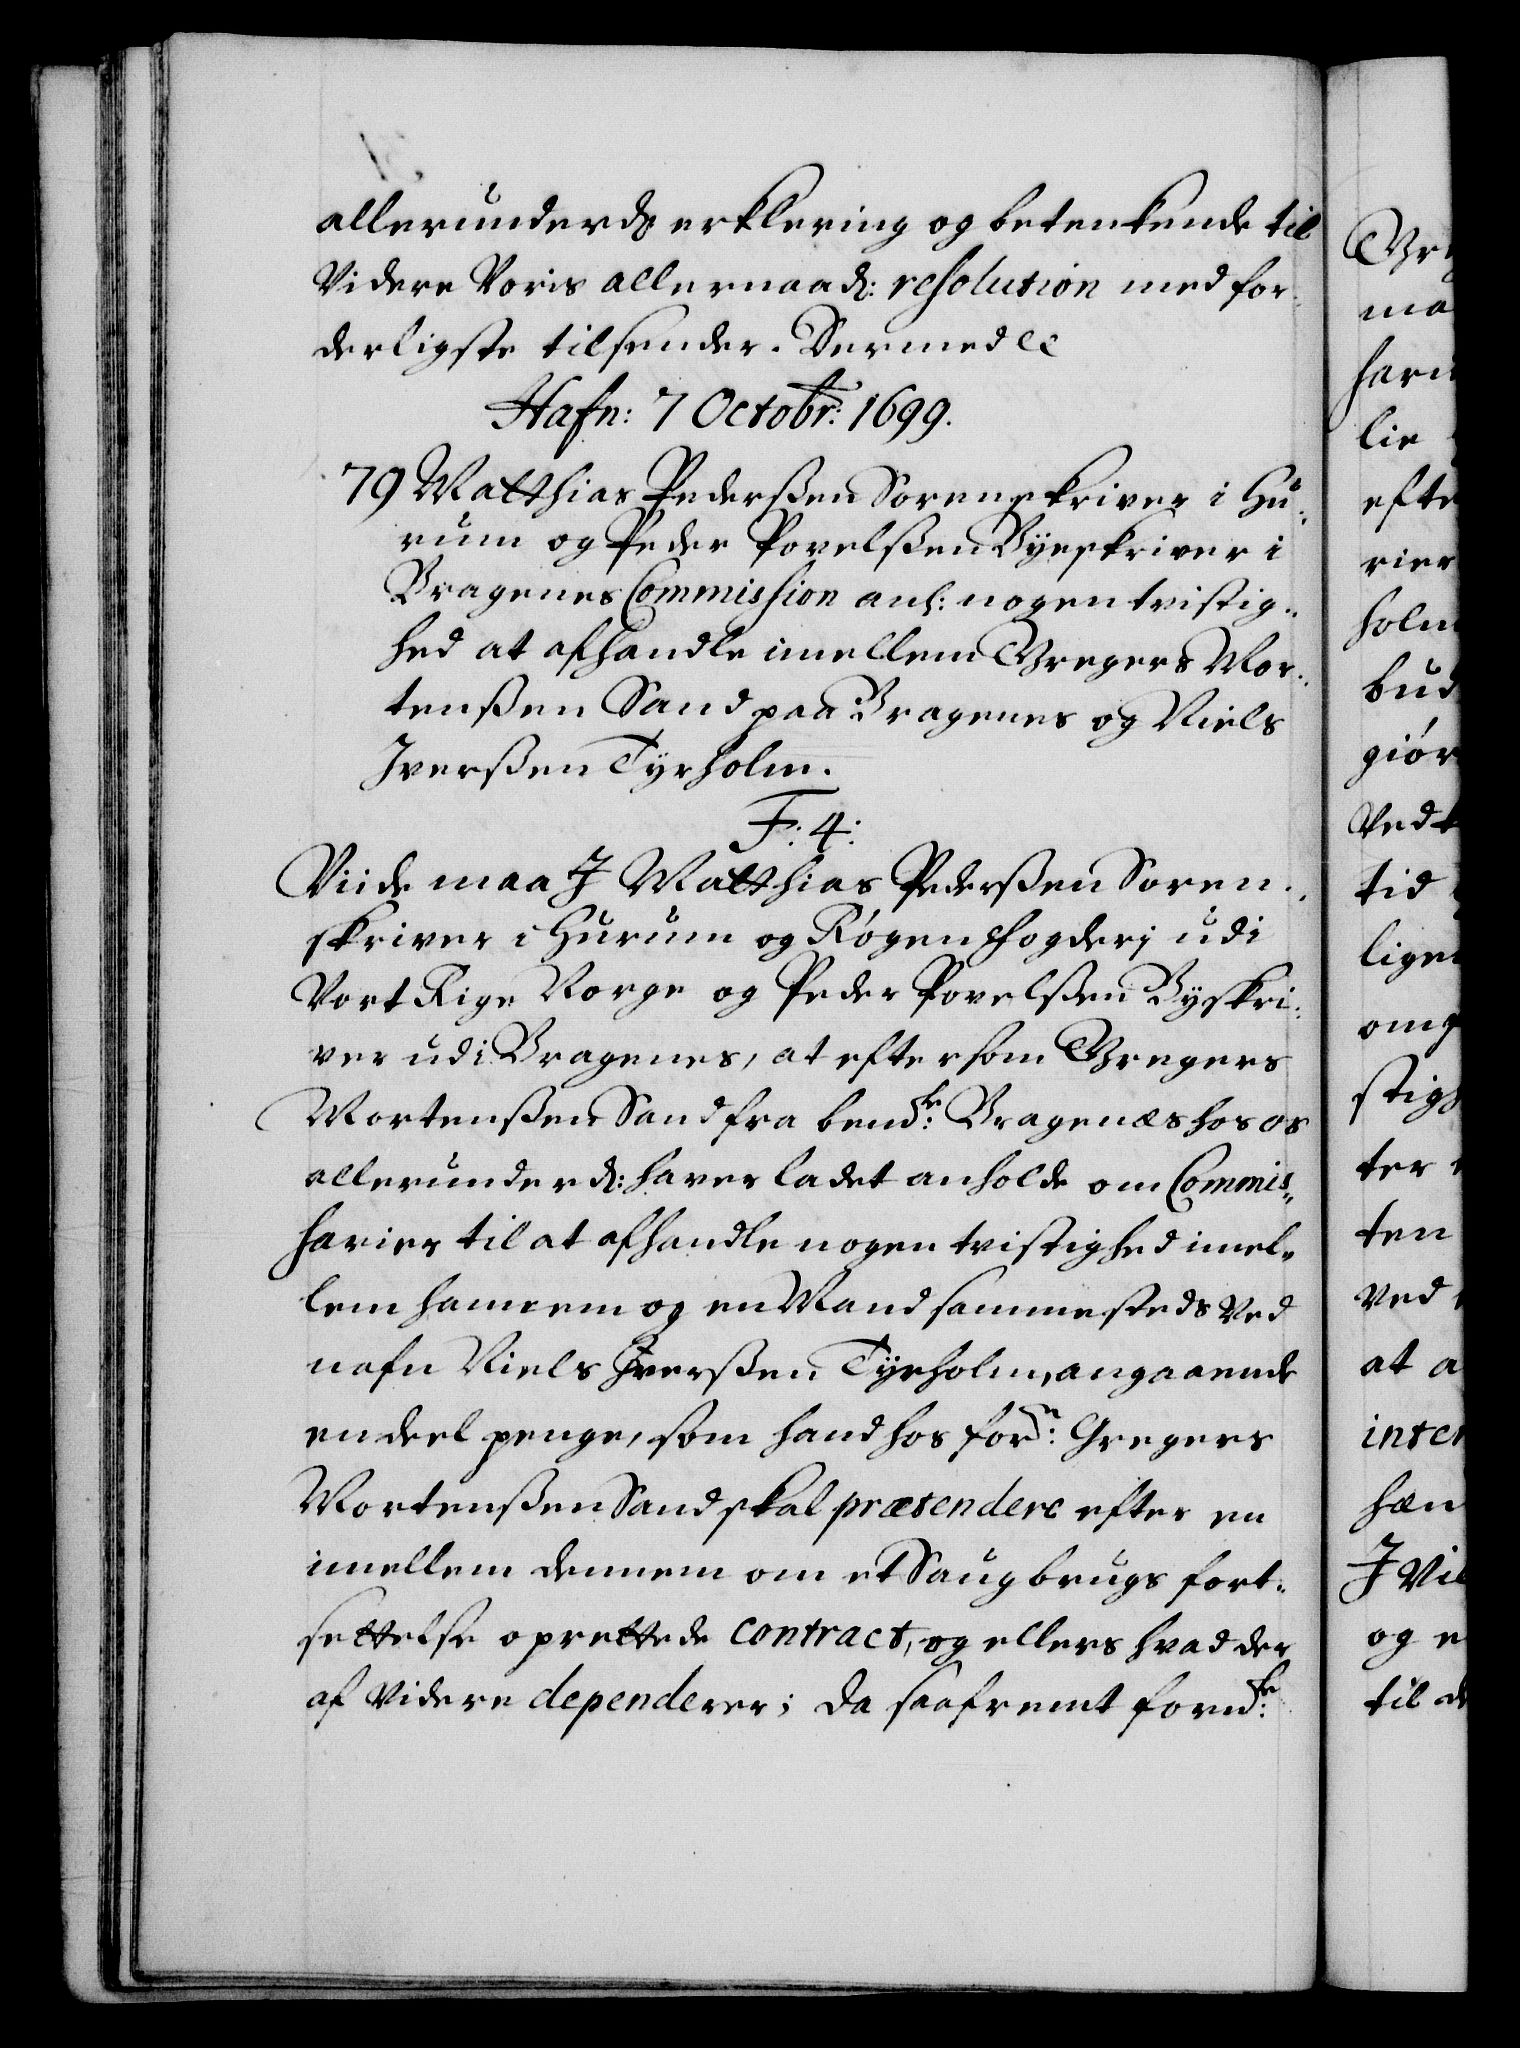 allerunderd: erklering og betenkende til
Videre Voris allernaad: resolution med for-
derligste tilsender. Dermed ec
Hafn: 7 Octobr: 1699.
79 Matthias Pederßen Sorenskriver i Hu-
rum og Peder Povelßen Byeskriver i
Bragenes Commission anl: nogen tvistig-
hed at afhandle imellem Gregers Mor-
tenßen Sand paa Bragenes og Niels
Iverßen Tyrholm.
F: 4:
Viide maa I Matthias Pederßen Soren-
skriver i Hurum og Røgens fogderj udi
Vort Rige Norge og Peder Povelßen Byskri-
ver udi Bragenes, at eftersom Gregers
Mortenßen Sand fra bemdte: Bragenæs hos os
allerunderd: haver ladet anholde om Commis-
sarier til at afhandle nogen tvistighed imel-
lem hannem og en Mand sammesteds ved
nafn Niels Iverßen Tyrholm, angaaende
en deel penge, som hand hos forn: Gregers
Mortenßen Sand skal prætendere efter en
imellem dennem om et Saugbrugs fort-
settelse oprettede contract, og ellers hvad der
af videre dependerer; Da saafremt fornde:
Gre
ma
haru
lie
efte
rier
holm
bud
giør
Vedt
tid
lige
omp
stigh
ter
ten
ved
at a
inter
hæn
I Vil
og e
til d